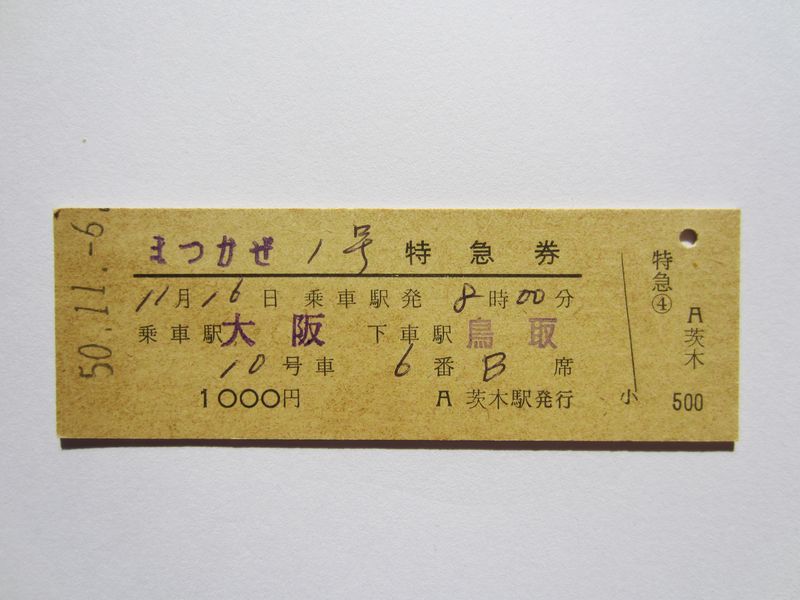 50.11.-6
まつかぜ 1号 特急券
11月16日 乗車駅発 8時00分
乗車駅 大阪 下車駅 鳥取
10号車 6番B席
1000円 A 茨木駅発行
小
特急④
A 茨木
500